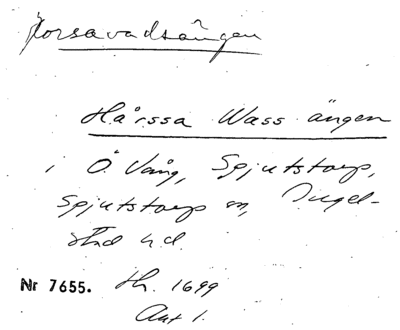 Horsavadsängen
Hårssa Wass ängen
i Ö. Vång, Spjutstorp,
Spjutstorp sn, Ingel-
stad hd.
Nr 7655. Hh. 1699
Akt 1.